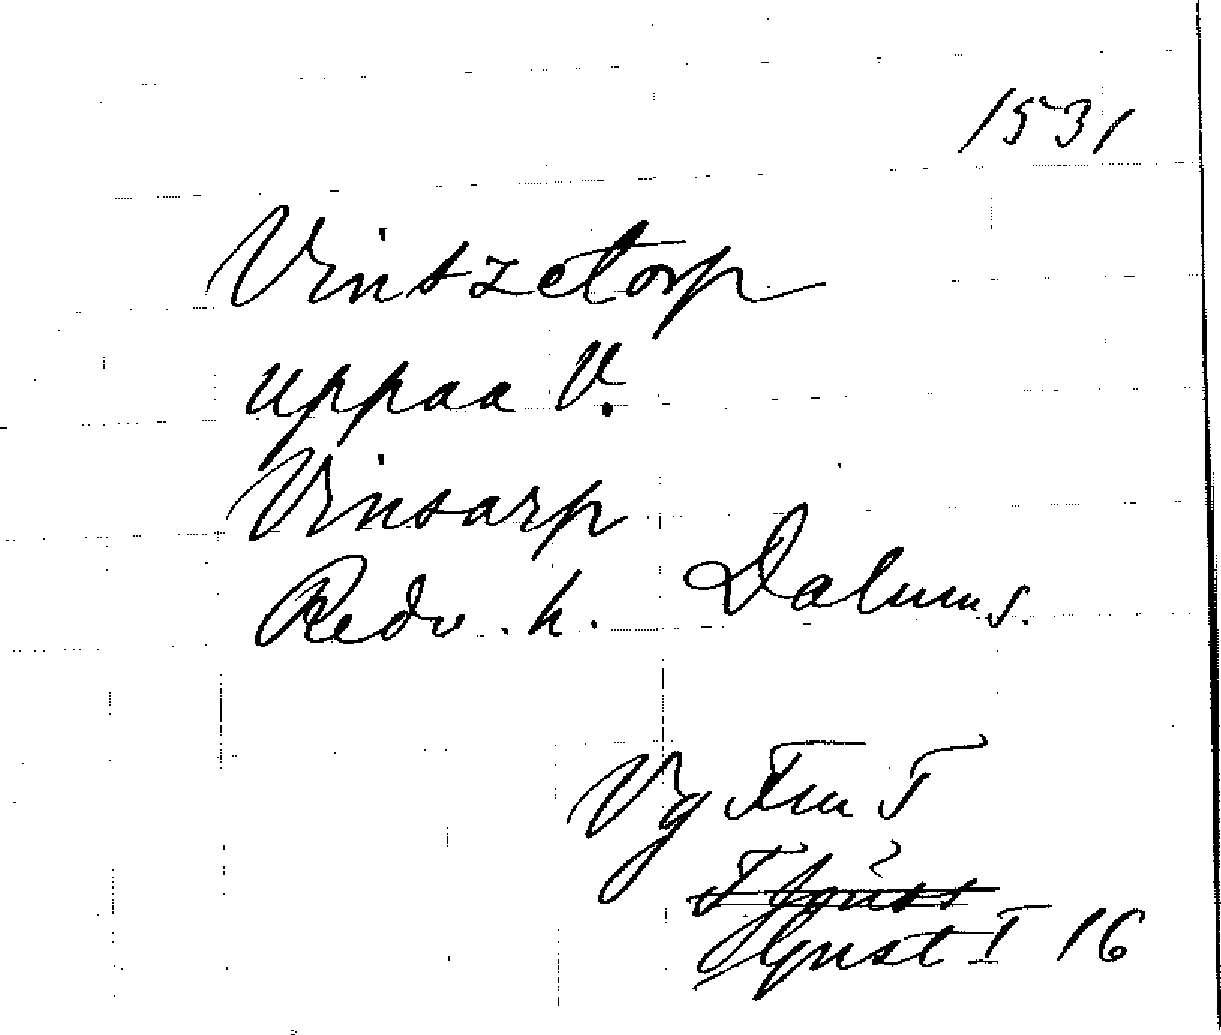 1531
Vintzetorp
uppaa V.
Vinsarp
Redv. h. Dalums.
Vg
Gust I 16